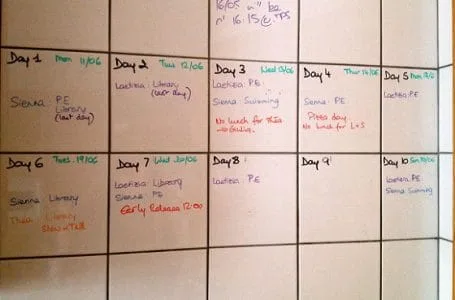 16/05
16:15@
Day 1 Mon 11/06
Sienna: P.E
Library
(last day)
Day 2 Tues 12/06
Laetizia: Library
(last day)
Day 3 Wed 13/06
Laetizia: P.E
Sienna: Swimming
No lunch for Thea
Day 4 Thur 14/06
Sienna: P.E
Pizza day
No lunch for L+S
Day 5 Mon
Laetizia: P.E
Day 6 Tues 19/06
Sienna: Library
Thea: Library
Show n Tell
Day 7 Wed 20/06
Laetizia: Library
Sienna: PE
Early Release 12:00
Day 8
Laetizia: P.E
Day 9
Day 10
Laetizia: P.E
Sienna Swimming